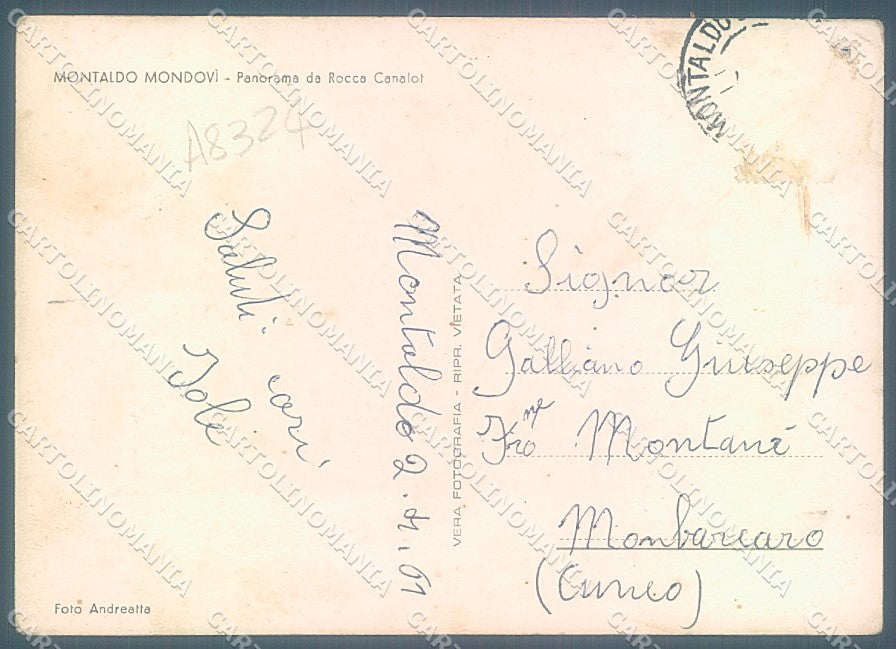 MONTALDO MONDOVÌ - Panorama da Rocca Canalot
A8324
Saluti cari
Iole
Montaldo 2.
VERA FOTOGRAFIA - RIPR. VIETATA
MONTALDO
Signor
Galliano Giuseppe
Fro ne Montané
Monbarcaro
(Cuneo)
Foto Andreatta
CARTOLINOMANIA